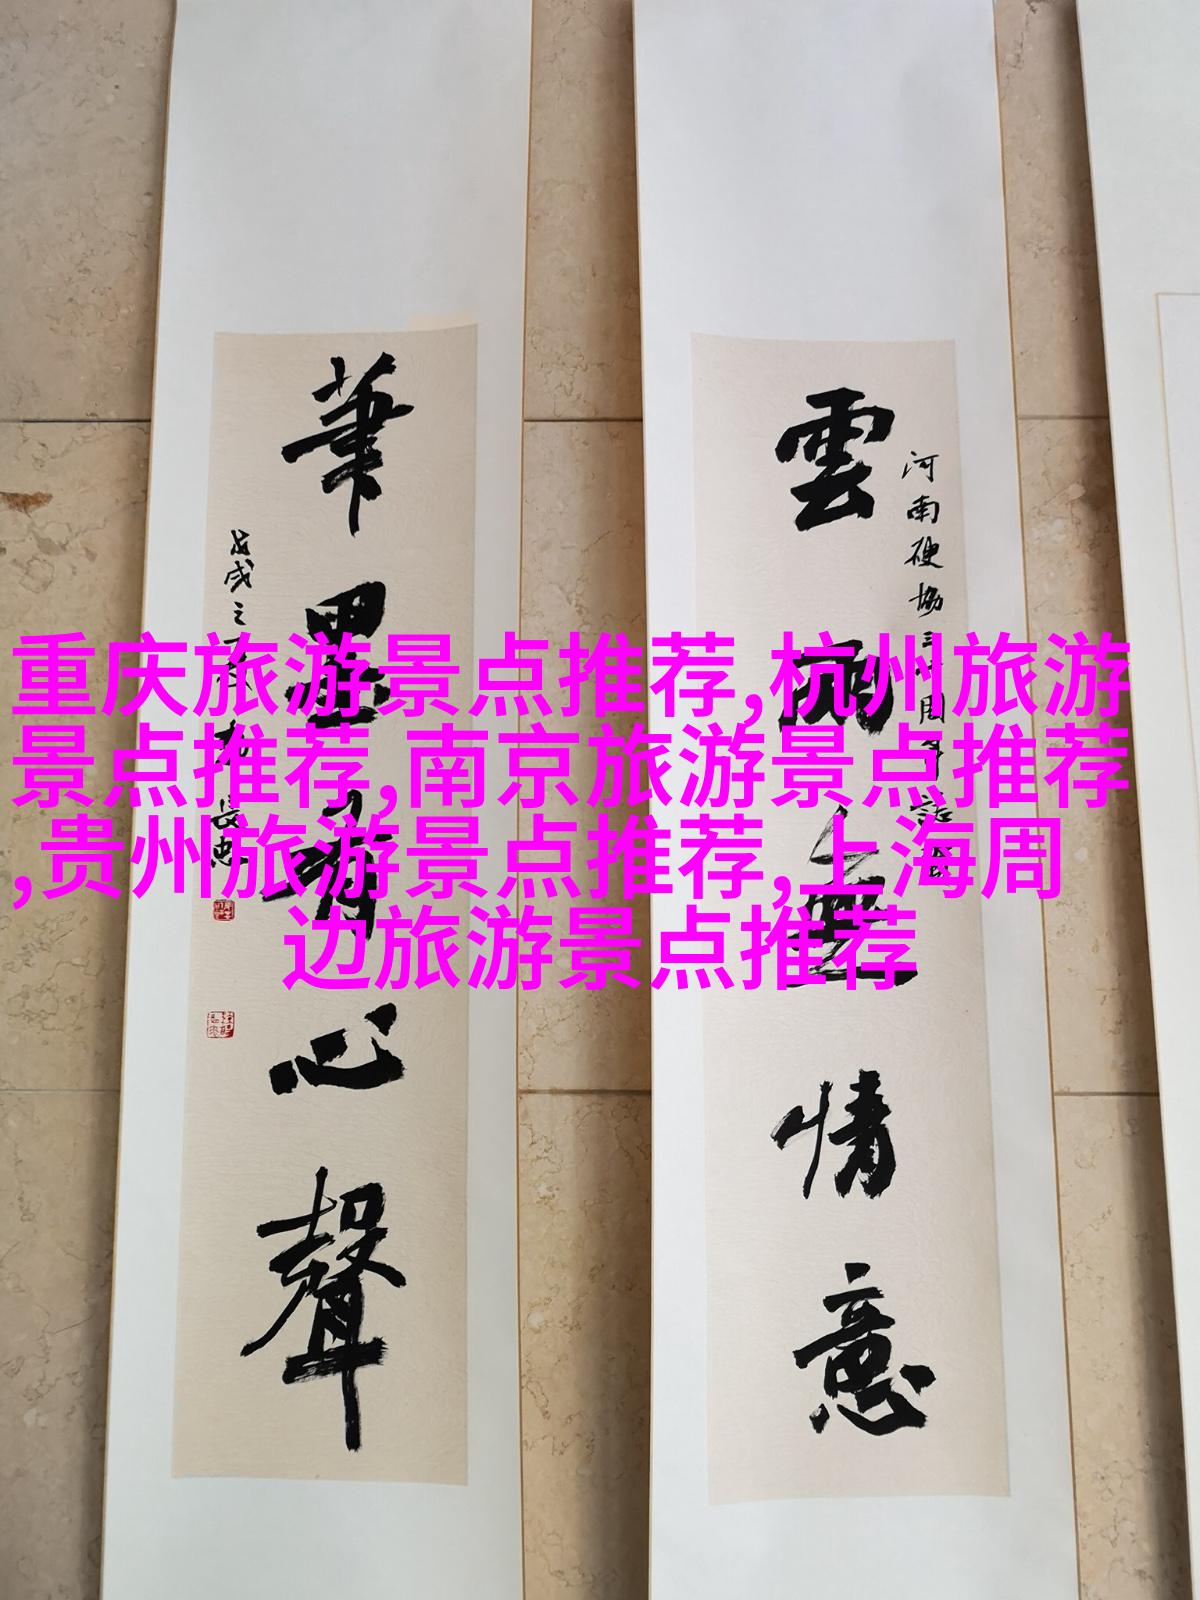 重庆旅游景点推荐,杭州旅游
景点推荐,南京旅游景点推荐
,贵州旅游景点推荐,上海周
边旅游景点推荐
雲雨無情意
河南硬協三十周年誌
筆墨有心聲
戊戌之